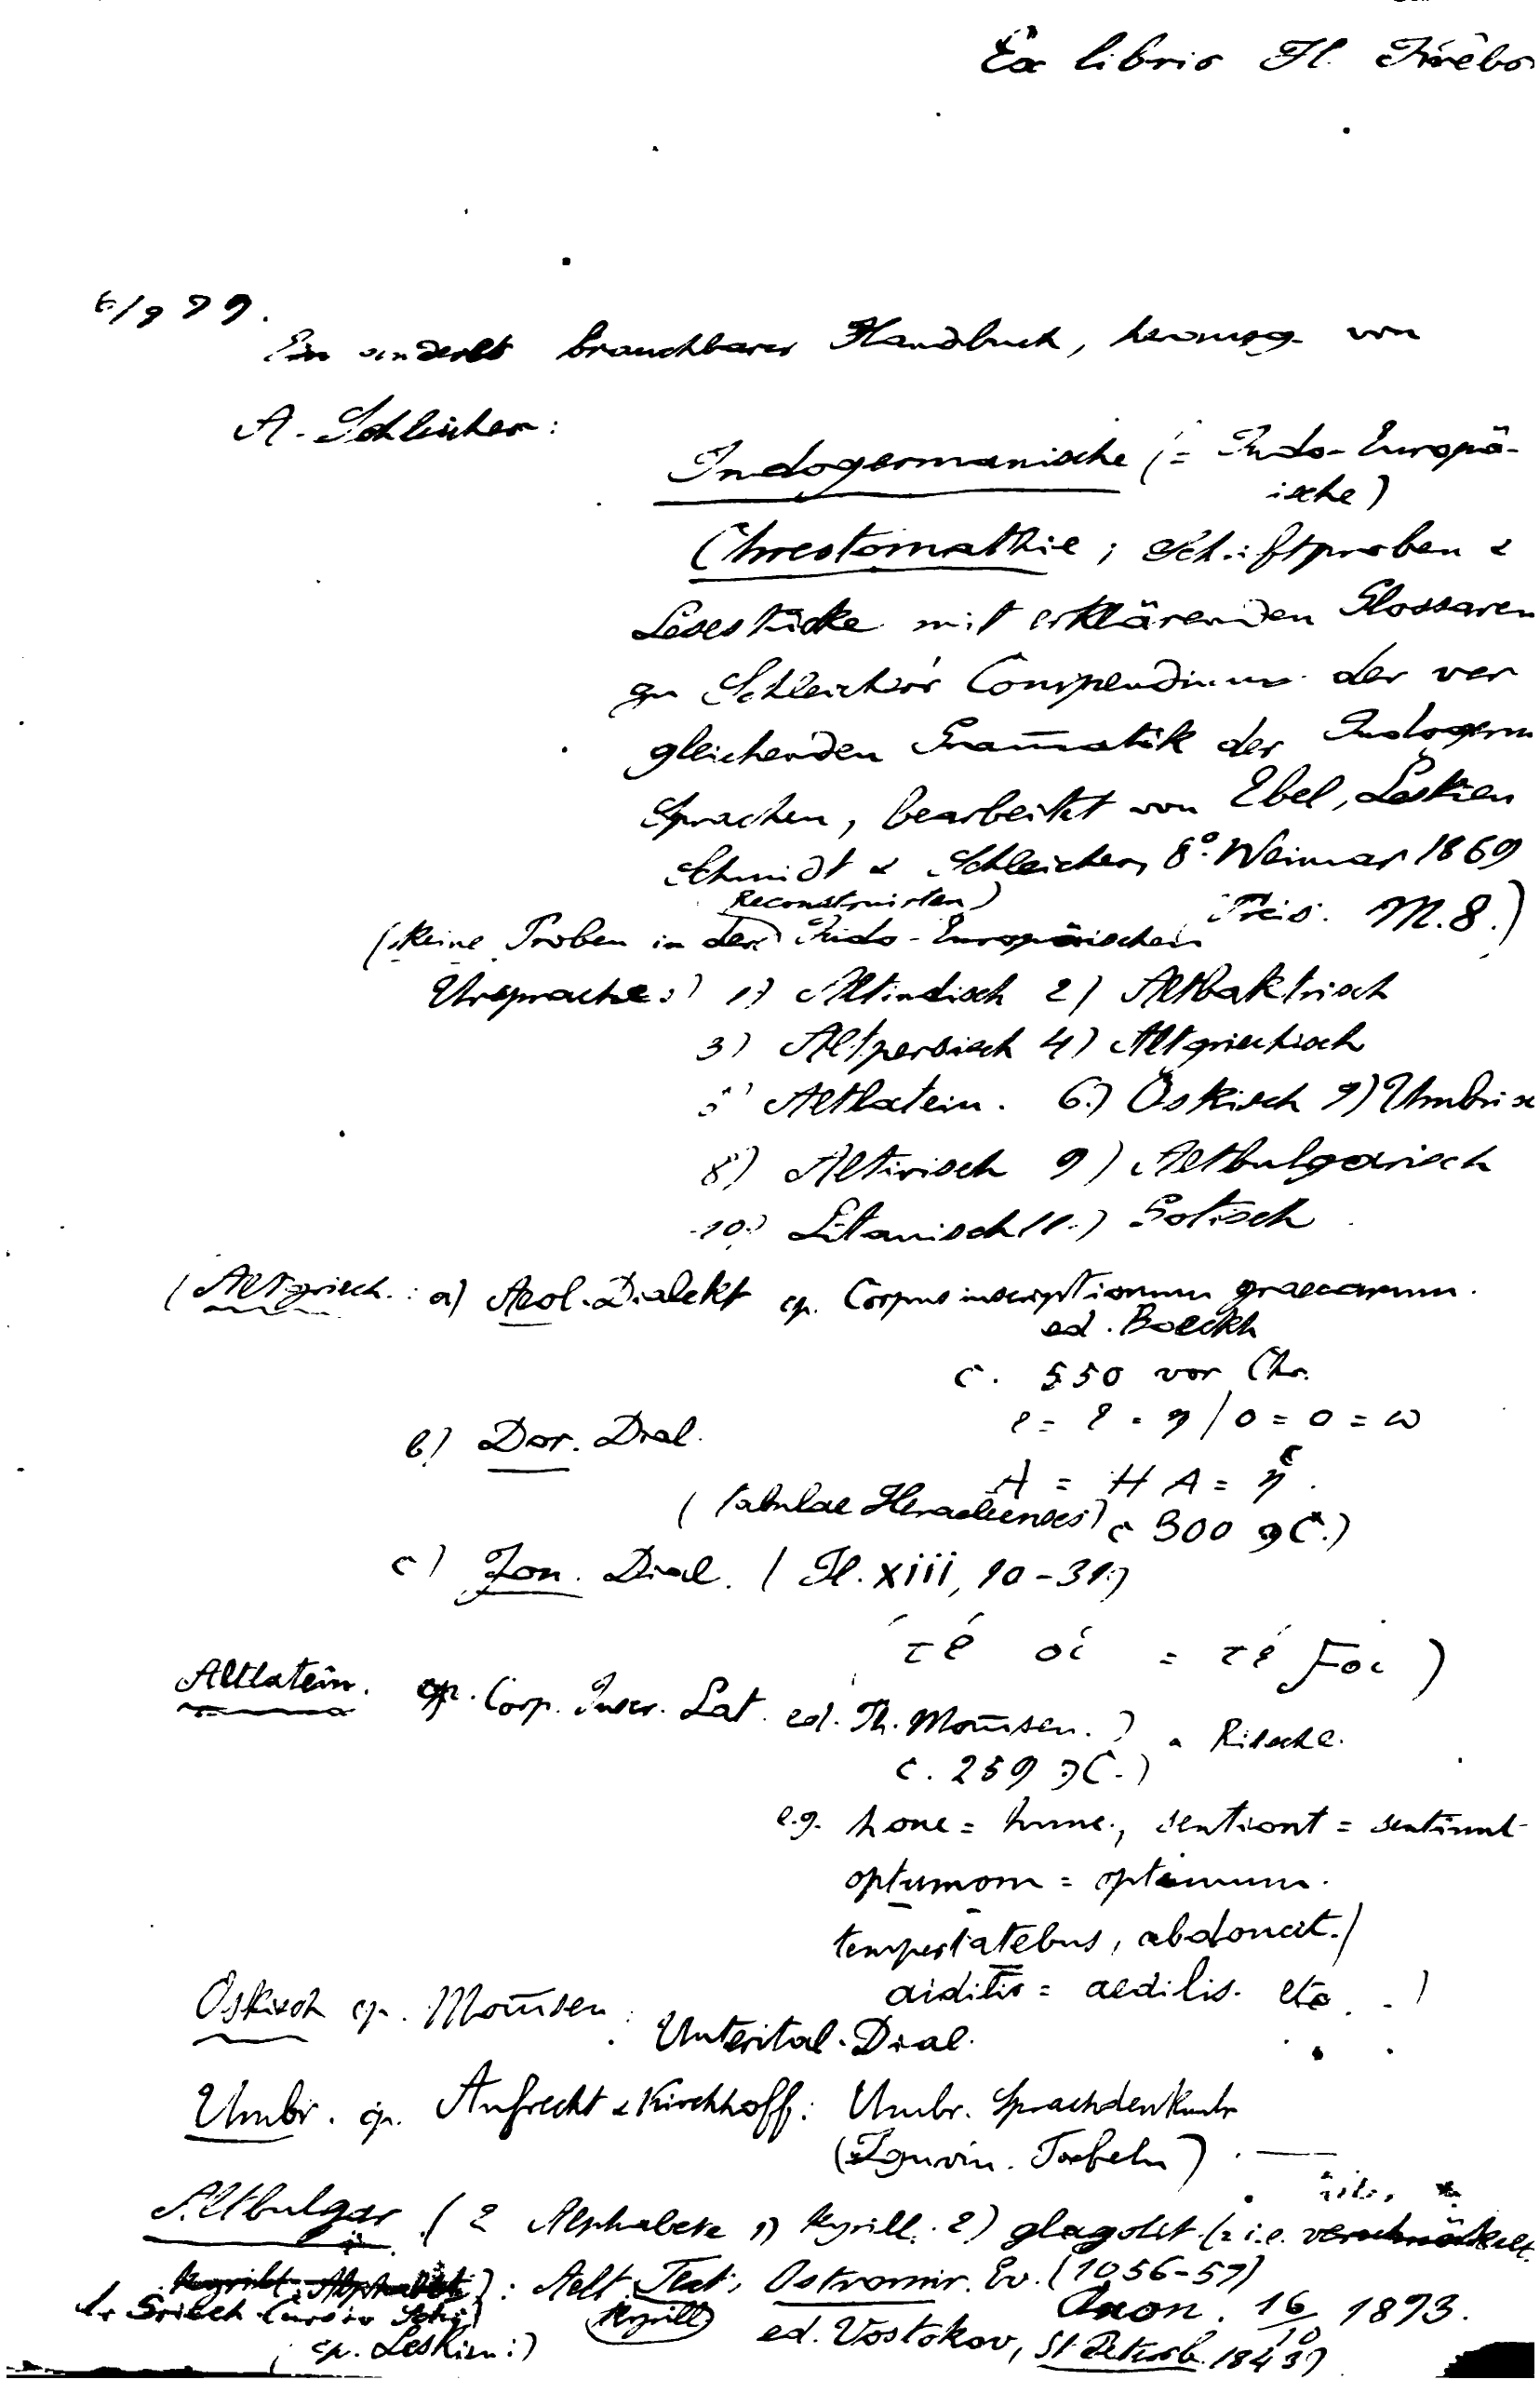 Ex libris H. Krebs
6/9 79.
Ein anderes brauchbares Handbuch, herausg. von
A. Schleicher:
Indogermanische (= Indo-Europä-
ische)
Chrestomathie; Schriftproben &
Lesestücke mit erklärenden Glossaren
zu Schleicher's Compendium der ver
gleichenden Gram̅atik der Indogerm
Sprachen, bearbeitet von Ebel, Leskien
Schmidt & Schleicher, 8º. Weimar 1869
Preis. M. 8.)
Reconstruirten)
(keine Proben in der Indo-Europäischen
Ursprache:) 1) Altindisch 2) Altbaktrisch
3) Altpersisch 4) Altgriechisch
5) Altlatein. 6.) Oskisch 7) Umbrisc
8) Altirisch 9) Altbulgarisch
10.) Litauisch 11.) Gotisch
(Altgriech.: a) Aeol. Dialekt cp. Corpus inscriptionum graecarum.
ed. Boeckh
c. 550 vor Chr.
e = ε = η / o = o = ω
b) Dor. Dial.
(Tabulae Heracleenses) c 300 a C.)
c) Ion. Dial. (Il. xiii, 10-31.)
τέ οἱ = τέ Ϝοι )
Altlatein. cp. Corp. Inscr. Lat. ed. Th. Mom̅sen.) & Ritschl.
c. 259 a C.)
e.g. honc = hunc., sentiont = sentiunt
optumom = optimum.
tempestatebus, abdoucit.)
aidilis = aedilis. etc. .)
Oskisch cp. Mom̅sen:
Unterital. Dial.
Umbr. cp. Aufrecht & Kirchhoff: Umbr. Sprachdenkmäler
(Iguvin. Tafeln)
Altbulgar. (2 Alphabete 1) Kyrill. 2) glagolit. (= i.e. verschnörkelt.
Kyrill. Alphabet): Aelt. Text, Ostromir. Ev. (1056-57)
Kyrill)
cp. Leskien:)
ed. Vostokov, St Petersb. 1843)
Oxon. 16/10 1873.